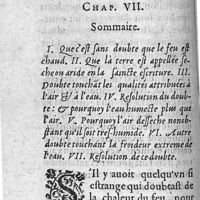 CHAP. VII.
Sommaire.
I. Que c'est sans doubte que le feu est
chaud. II. Que la terre est appellee se-
che ou aride en la saincte escriture. III.
Doubte touchãt les qualitez attribuées à
l'air & à l'eau. IV. Resolution du doub-
te: & pourquoy l'eau humecte plus que
l'air. V. Pourquoy l'air desseche nonob-
stant qu'il soit tres-humide. VI. Autre
doubte touchant la froideur extreme de
l'eau. VII. Resolution de ce doubte.
S'Il y auoit quelqu'vn si
estrange qui doubtast de
la chaleur du feu, pour